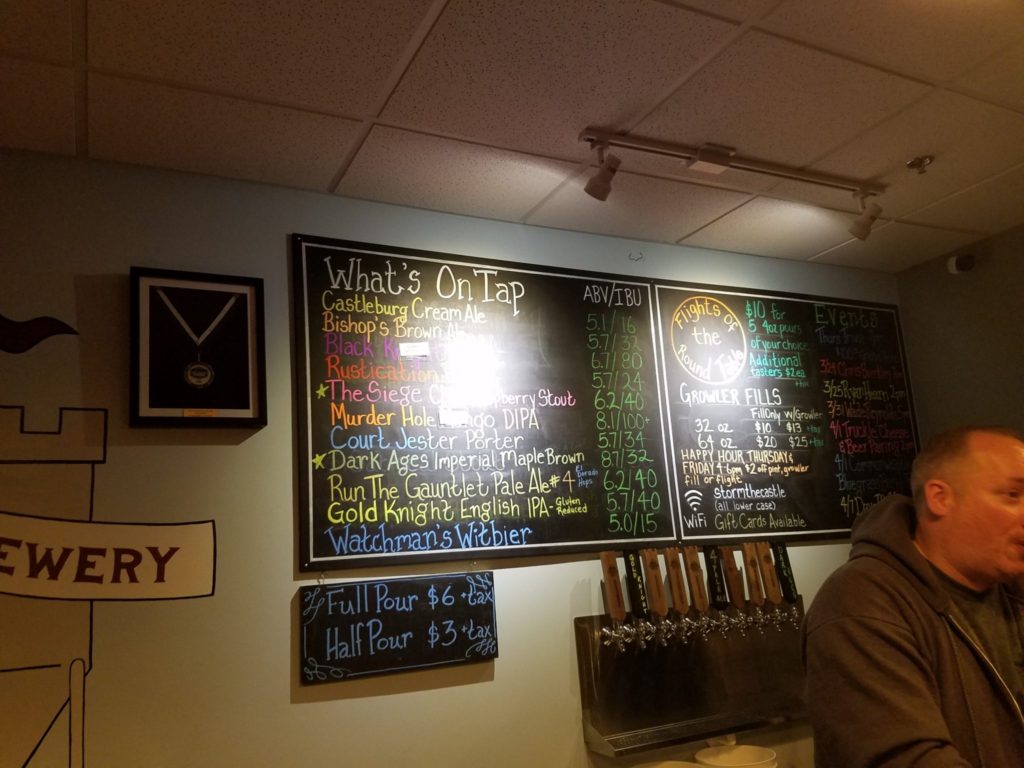 What's On Tap
ABV/IBU
Castleburg Cream Ale
5.1/16
Bishop's Brown Ale
5.7/32
Black
6.7/80
Rustication
5.7/24
The Siege Stout
6.2/40
Murder Hole DIPA
8.1/100+
Court Jester Porter
5.7/34
Dark Ages Imperial Maple Brown
8.7/32
Run The Gauntlet Pale Ale #4 El Dorado Hops
6.2/40
Gold Knight English IPA - Gluten Reduced
5.7/40
Watchman's Witbier
5.0/15
Full Pour $6 +tax
Half Pour $3 +tax
Flights of
the
Round Table
$10 for
5 4oz pours
of your choice
Additional
tasters $2 ea
+tax
Growler Fills
Fill Only W/Growler
32 oz $10 $13 +tax
64 oz $20 $25 +tax
HAPPY HOUR THURSDAY &
FRIDAY 4-6pm $2 off pint, growler
fill or flight
stormthecastle
(all lower case)
WiFi Gift Cards Available
Events
3/24
3/25
3/31
4/1 Truckle Cheese
& Beer Pairing
4/1
EWERY